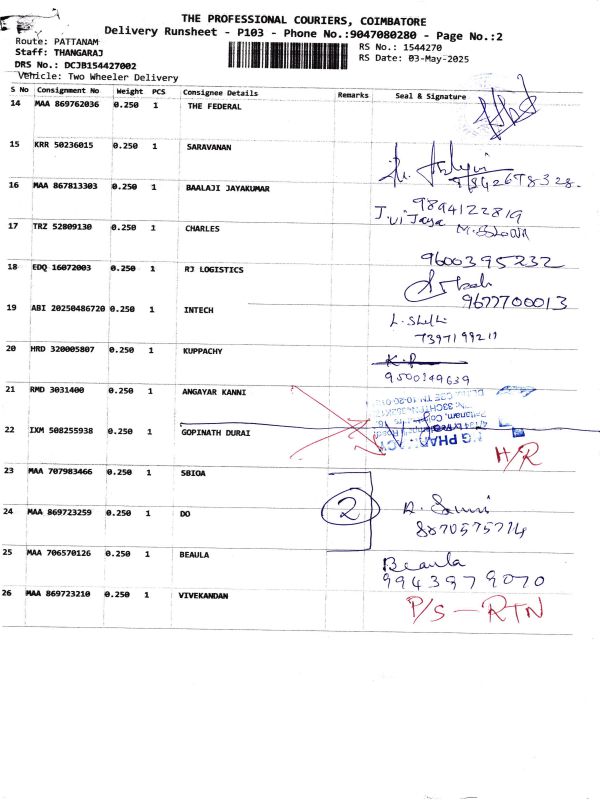 THE PROFESSIONAL COURIERS, COIMBATORE
Delivery Runsheet - P103 - Phone No.:9047080280 - Page No.:2
Route: PATTANAM
Staff: THANGARAJ
RS No.: 1544270
DRS No.: DCJB154427002
RS Date: 03-May-2025
Vehicle: Two Wheeler Delivery
S No Consignment No Weight PCS Consignee Details Remarks Seal & Signature
14 MAA 869762036 0.250 1 THE FEDERAL
15 KRR 50236015 0.250 1 SARAVANAN
9842678328.
16 MAA 867813303 0.250 1 BAALAJI JAYAKUMAR
9894122819
17 TRZ 52809130 0.250 1 CHARLES
J.vijaya
9600395232
18 EDQ 16072003 0.250 1 RJ LOGISTICS
9677700013
19 ABI 20250486720 0.250 1 INTECH
7397199211
20 HRD 320005807 0.250 1 KUPPACHY
K.P
9500149639
21 RMD 3031400 0.250 1 ANGAYAR KANNI
22 IXM 508255938 0.250 1 GOPINATH DURAI
H/R
23 MAA 707983466 0.250 1 SBIOA
24 MAA 869723259 0.250 1 DO
2
8870575774
25 MAA 706570126 0.250 1 BEAULA
Beaula
9943979070
26 MAA 869723210 0.250 1 VIVEKANDAN
P/S - RTN